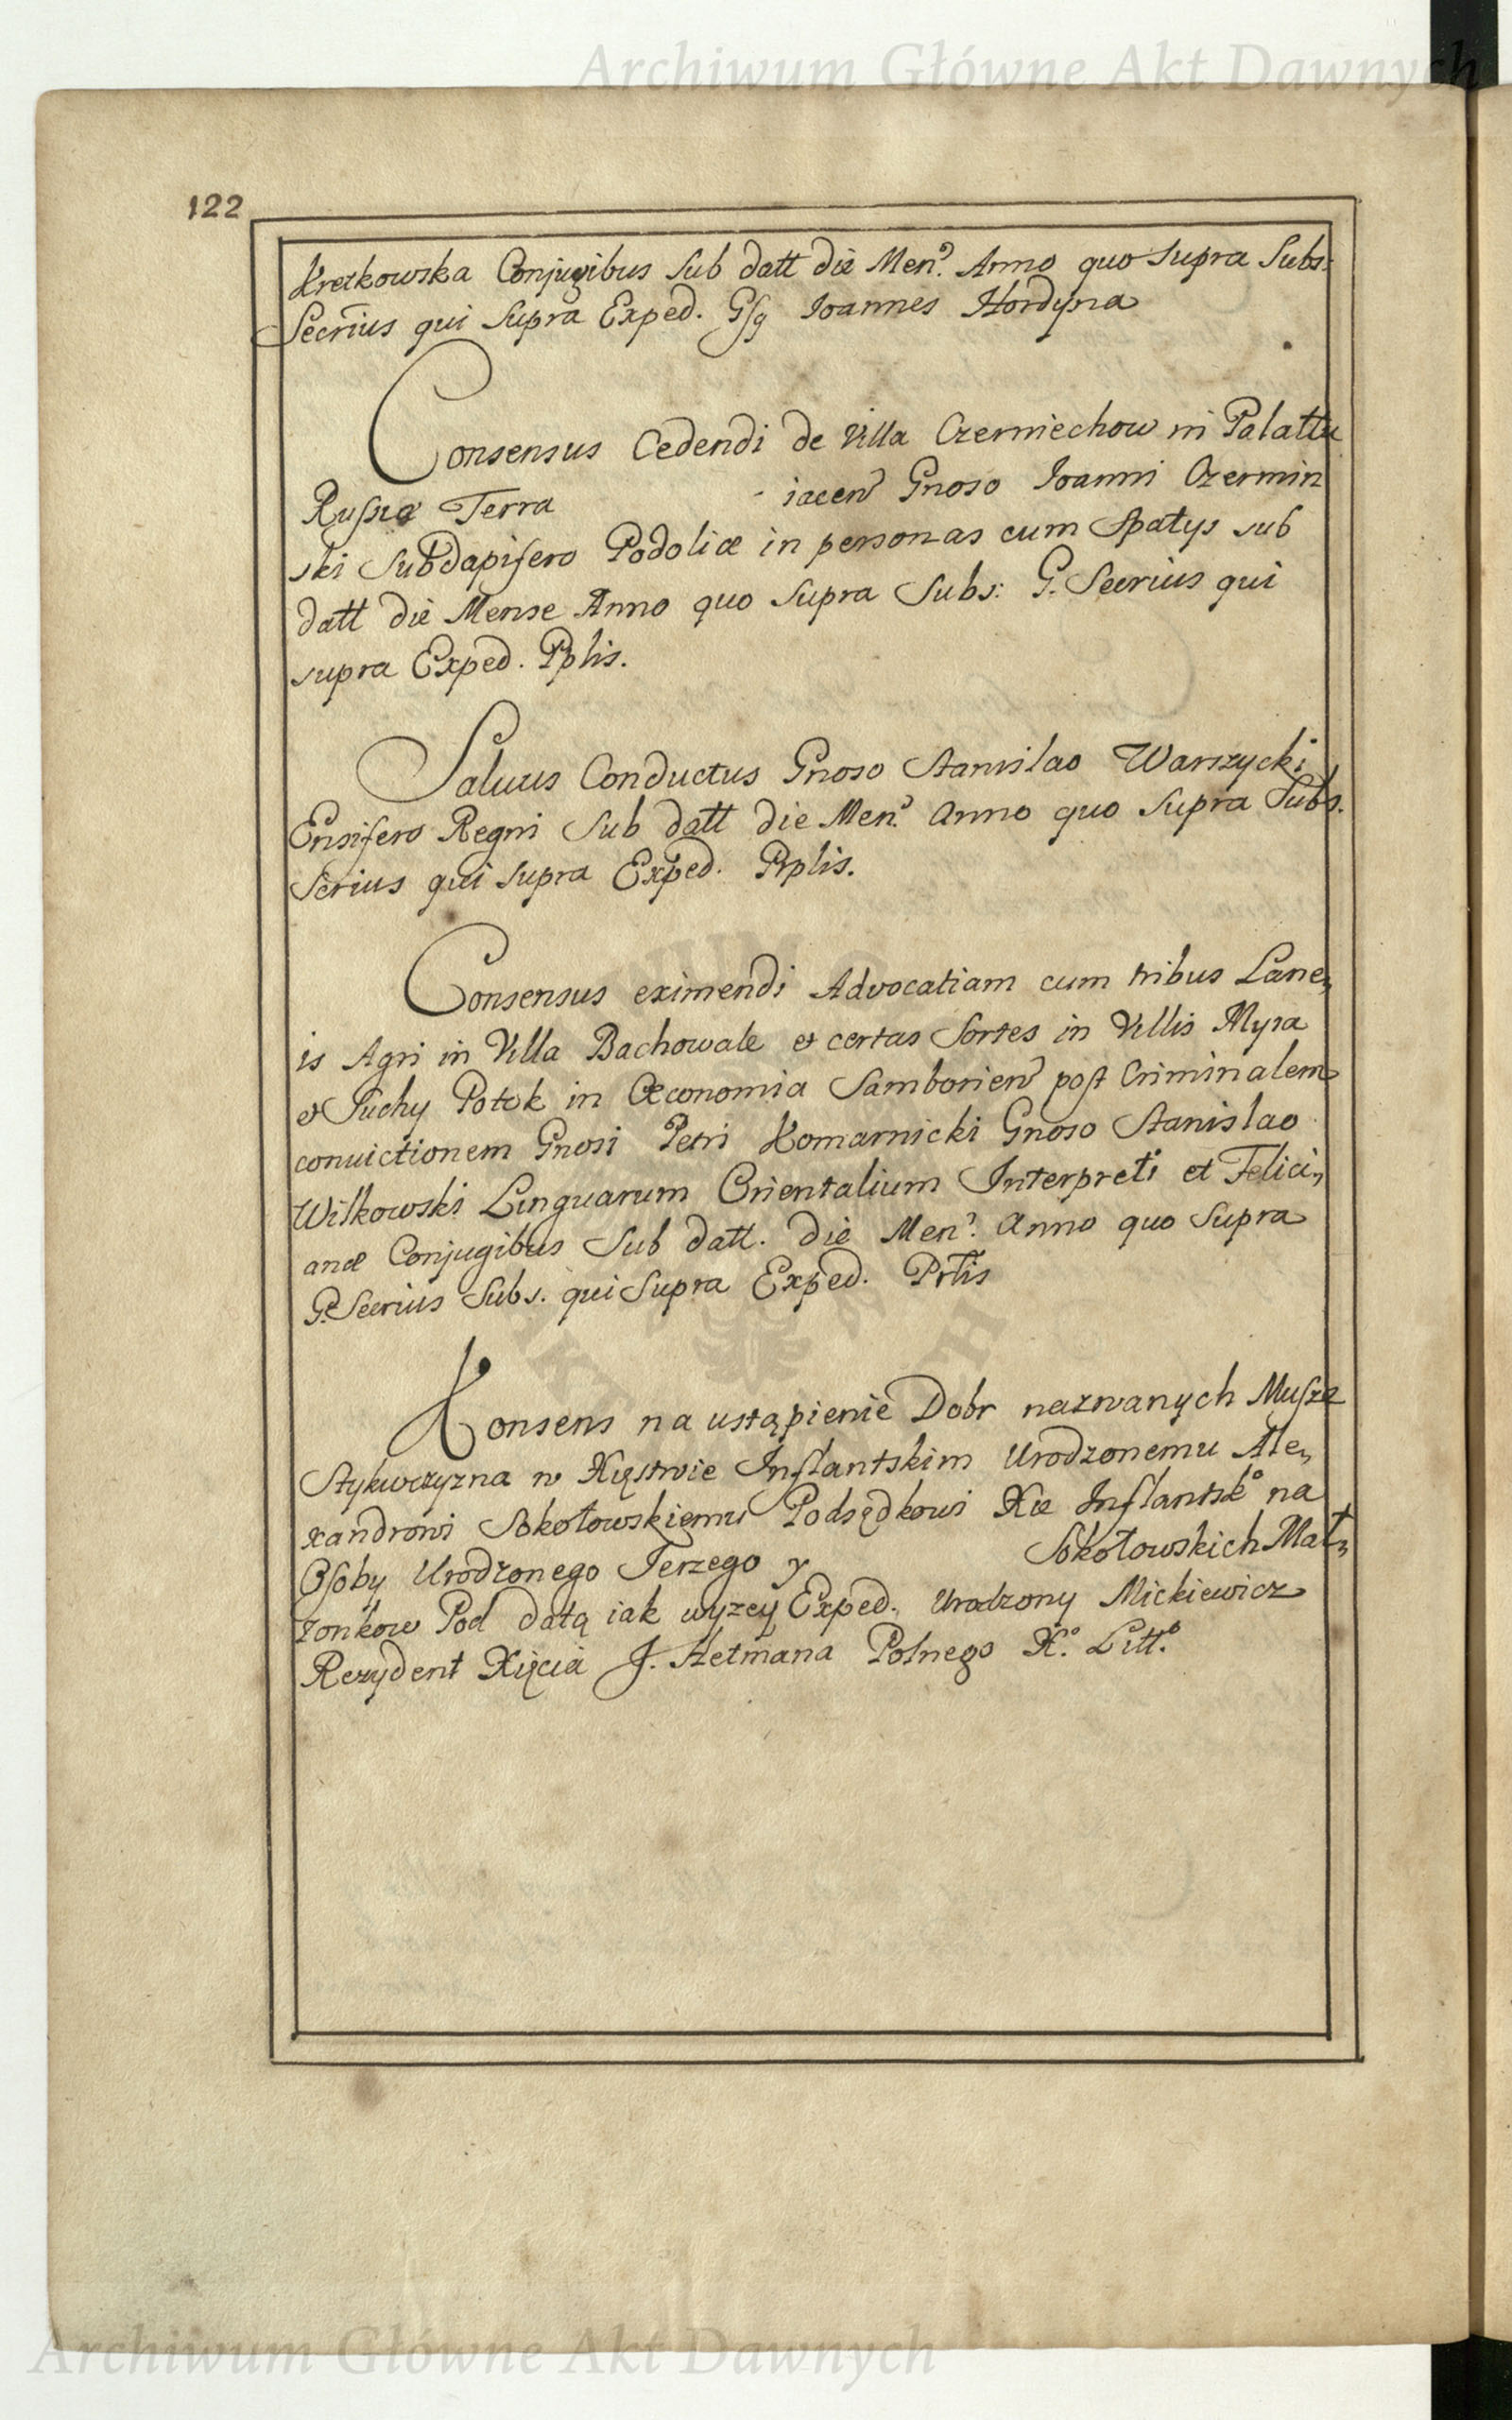 Archiwum Główne Akt Dawnych
122
Kretkowska Conjugibus Sub datt die Men? Anno quo Supra Subs:
Secrius qui Supra Exped. Gsq Ioannes Hordyna
Consensus Cedendi de Villa Czerniechow in Palattu
Russiæ Terra - iacen Gnoso Ioanni Czermin
ski Subdapifero Podoliæ in personas cum Spatys sub
datt die Mense Anno quo Supra Subs: G. Secrius qui
supra Exped. Pplis.
Salvus Conductus Gnoso Stanislao Warszycki
Ensifero Regni Sub datt die Men? Anno quo Supra Subs.
Serius qui Supra Exped. Prplis.
Consensus eximendi Advocatiam cum tribus Lane,
is Agri in Villa Bachowale et certas Sortes in Villis Mysa
et Suchy Potok in Œconomia Samborien post Criminalem
convictionem Gnosi Petri Komarnicki Gnoso Stanislao
Wilkowski Linguarum Orientalium Interpreti et Felici,
anæ Conjugibus Sub datt. die Men? Anno quo Supra
G. Secrius Subs. qui Supra Exped. Prtis
Konsens na ustąpienie Dobr nazwanych Musza
Stykwczyzna w Xięstwie Inflantskim Urodzonemu Ale,
xandrowi Sokołowskiemu Podsędkowi Xa Inflantsk° na
Osoby Urodzonego Jerzego y Sokołowskich Mał,
zonkow Pod datą iak wyzey Exped. Urodzony Mickiewicz
Rezydent Xięcia J. Hetmana Polnego X° Litt°
Archiwum Główne Akt Dawnych